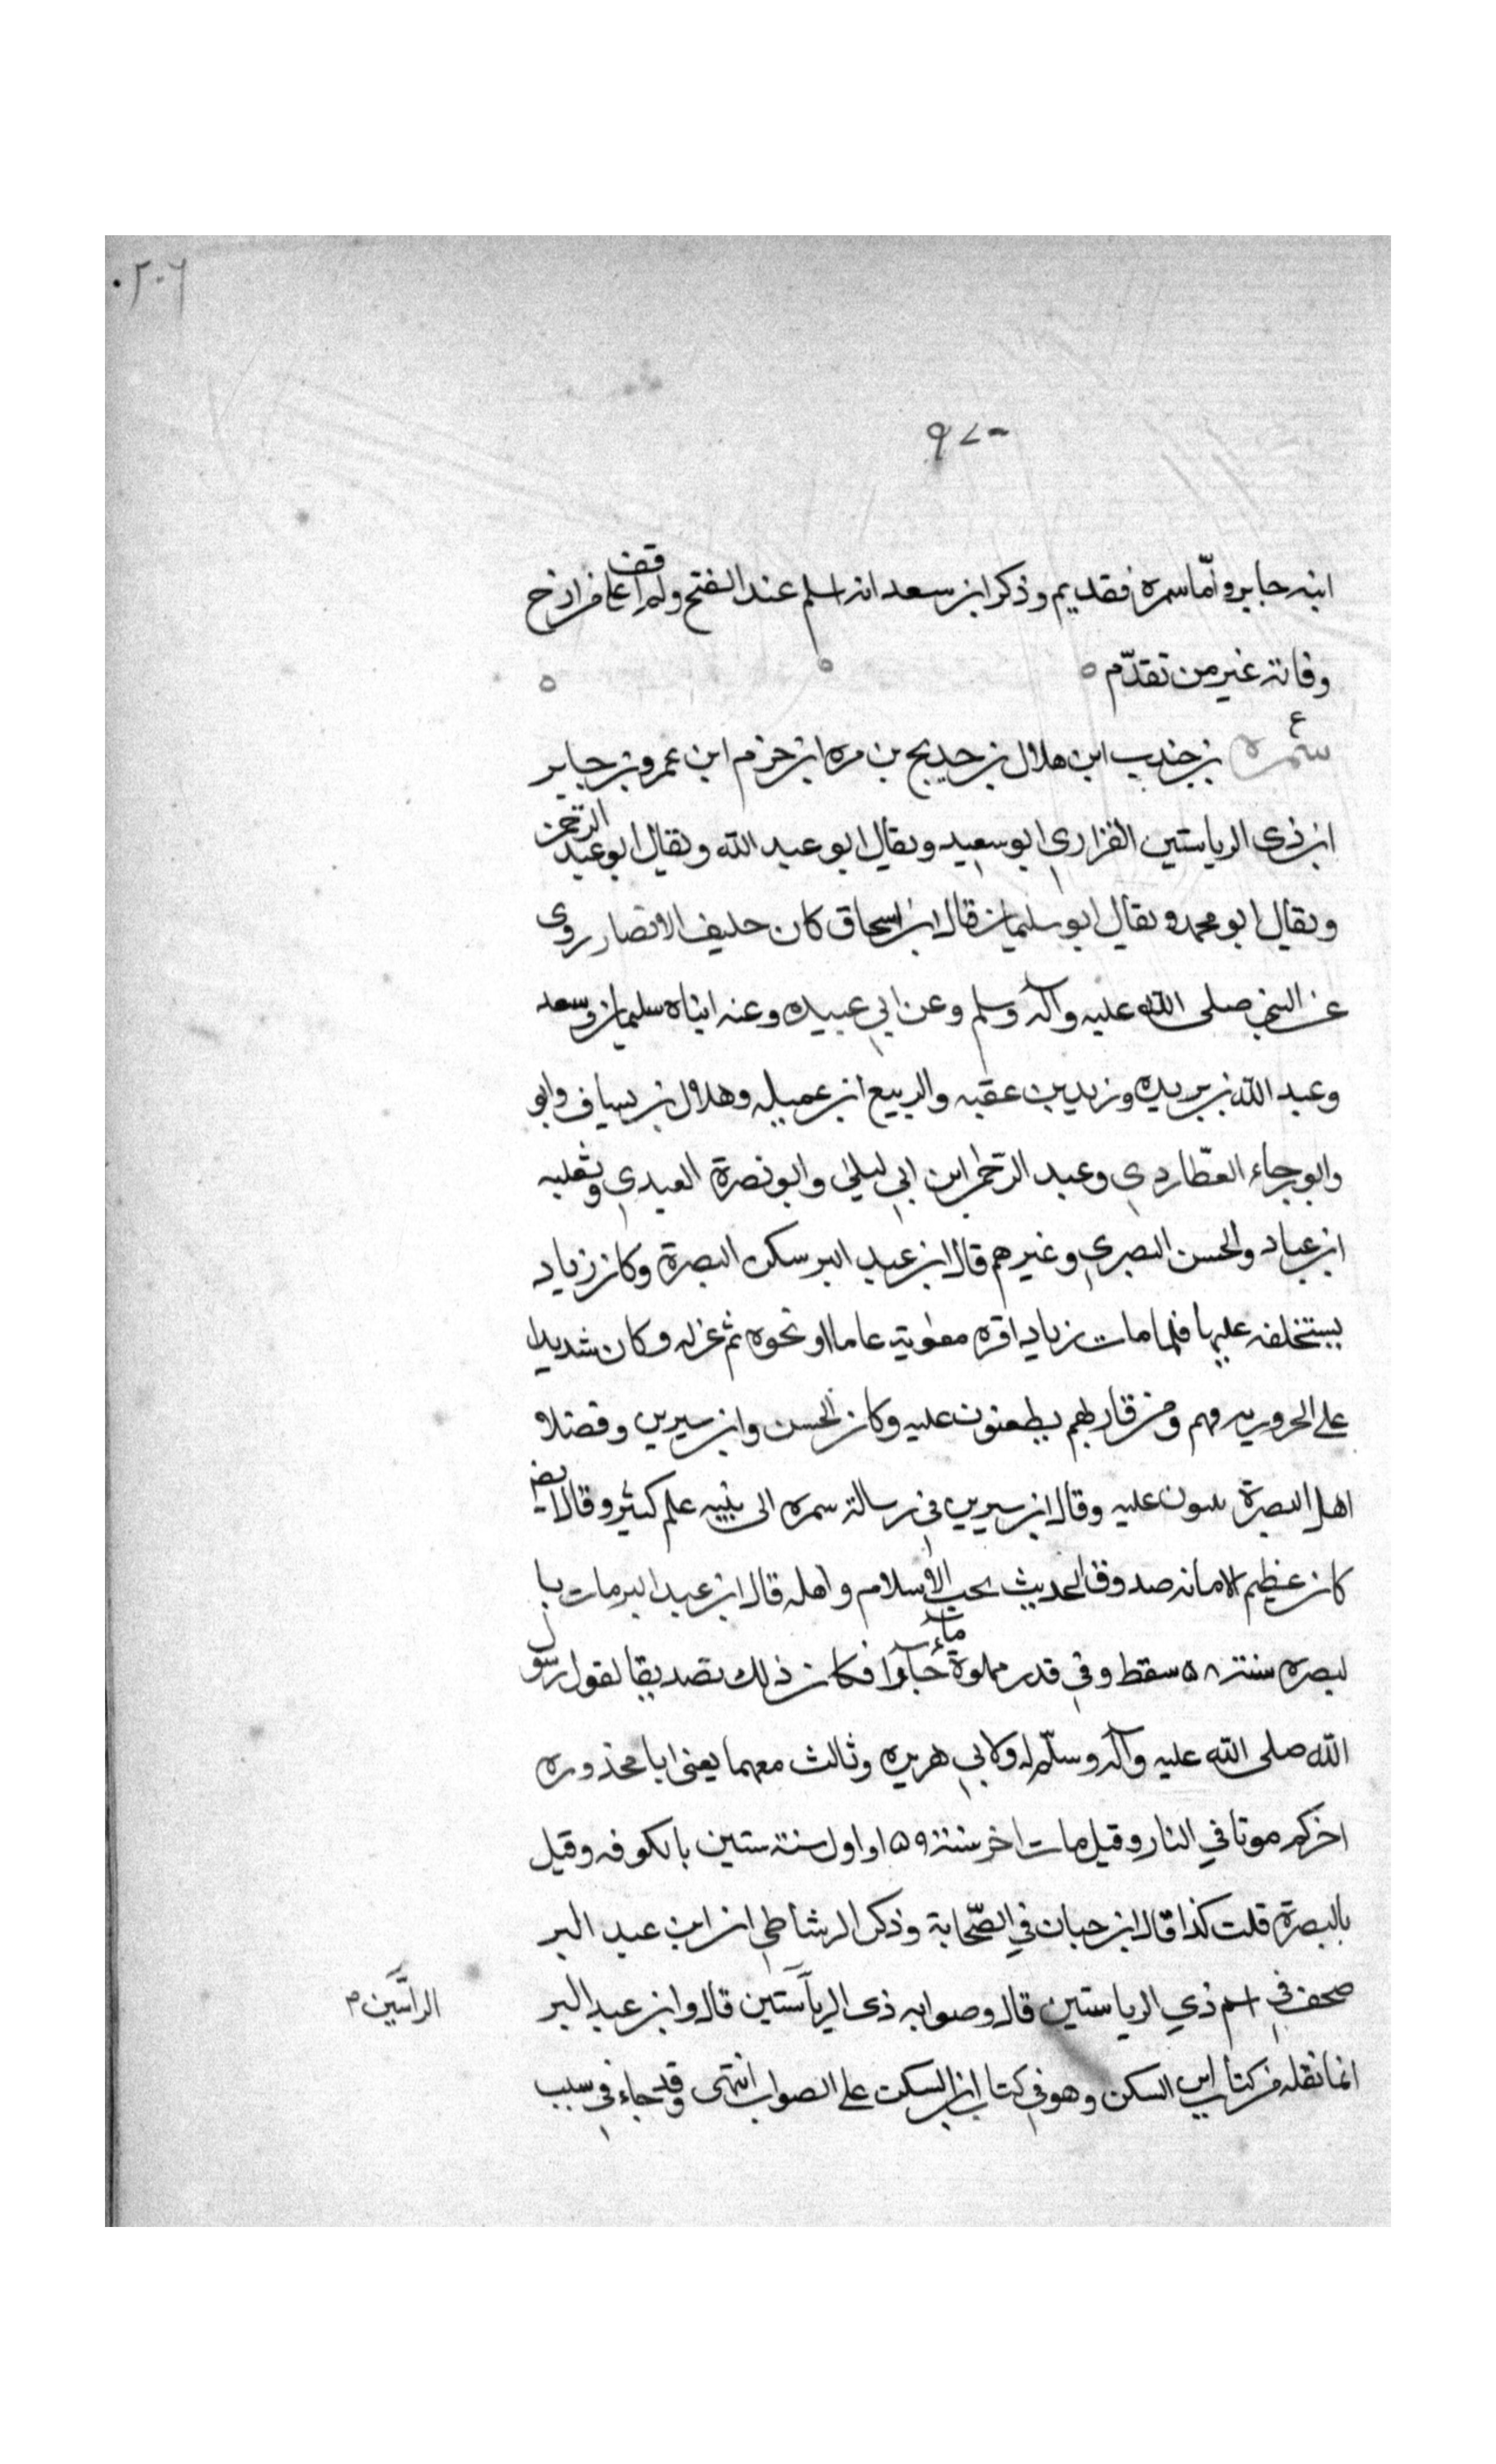 ٠٢٠٦
٩٧٠
ابنه جابر وامّا سمره فقديم وذكر ابن سعد انه اسلم عند الفتح ولم اقف على من ارخ
وفاته غير من تقدّم ه
ع
سمره بن جندب ابن هلال بن حديج بن مره ابن حزم ابن عمرو بن جابر
ابن ذى الرياستين الفزاري ابو سعيد ويقال ابو عبد الله ويقال ابو عبد الرحمن
ويقال ابو محمد ويقال ابو سليمان قال ابن اسحاق كان حليف الانصار روى
عن النبي صلى الله عليه وآله وسلم وعن ابي عبيده وعنه ابناه سليمان وسعد
وعبد الله بن بريده وزيد بن عقبه والربيع ابن عميله وهلال بن يساف وابو
وابو رجاء العطّاردي وعبد الرحمن ابن ابي ليلى وابو نصرة العبدي وثعلبه
ابن عباد والحسن البصري وغيرهم قال ابن عبد البر سكن البصرة وكان زياد
يستخلفه عليها فلما مات زياد اقره معوية عاما او نحوه ثم عزله وكان شديدا
على الحروريه فهم ومن قاربهم يطعنون عليه وكان الحسن وابن سيرين وفضلا
اهل البصرة يثنون عليه وقال ابن سيرين في رسالة سمره الى بنيه علم كثير وقال ايض
كان عظيم الامانه صدوق الحديث يحب الاسلام واهله قال ابن عبد البر مات با
لبصره سنة ٥٨ سقط في قدر مملوة ماء حارا فكان ذلك تصديقا لقول رسول
الله صلى الله عليه وآله وسلّم له ولابي هريره وثالث معهما يعنى ابا محذوره
اخركم موتا في النار وقيل مات اخر سنة ٥٩ او اول سنة ستين بالكوفه وقيل
بالبصرة قلت كذا قال ابن حبان في الصّحابة وذكر الرشاطي ان ابن عبد البر
صحف في اسم ذي الرياستين قال وصوابه ذى الرأستين قال وابن عبد البر
الرأسين م
انما نقله من كتاب ابن السكن وهو في كتاب ابن السكن على الصواب انتهى وقد جاء في سبب